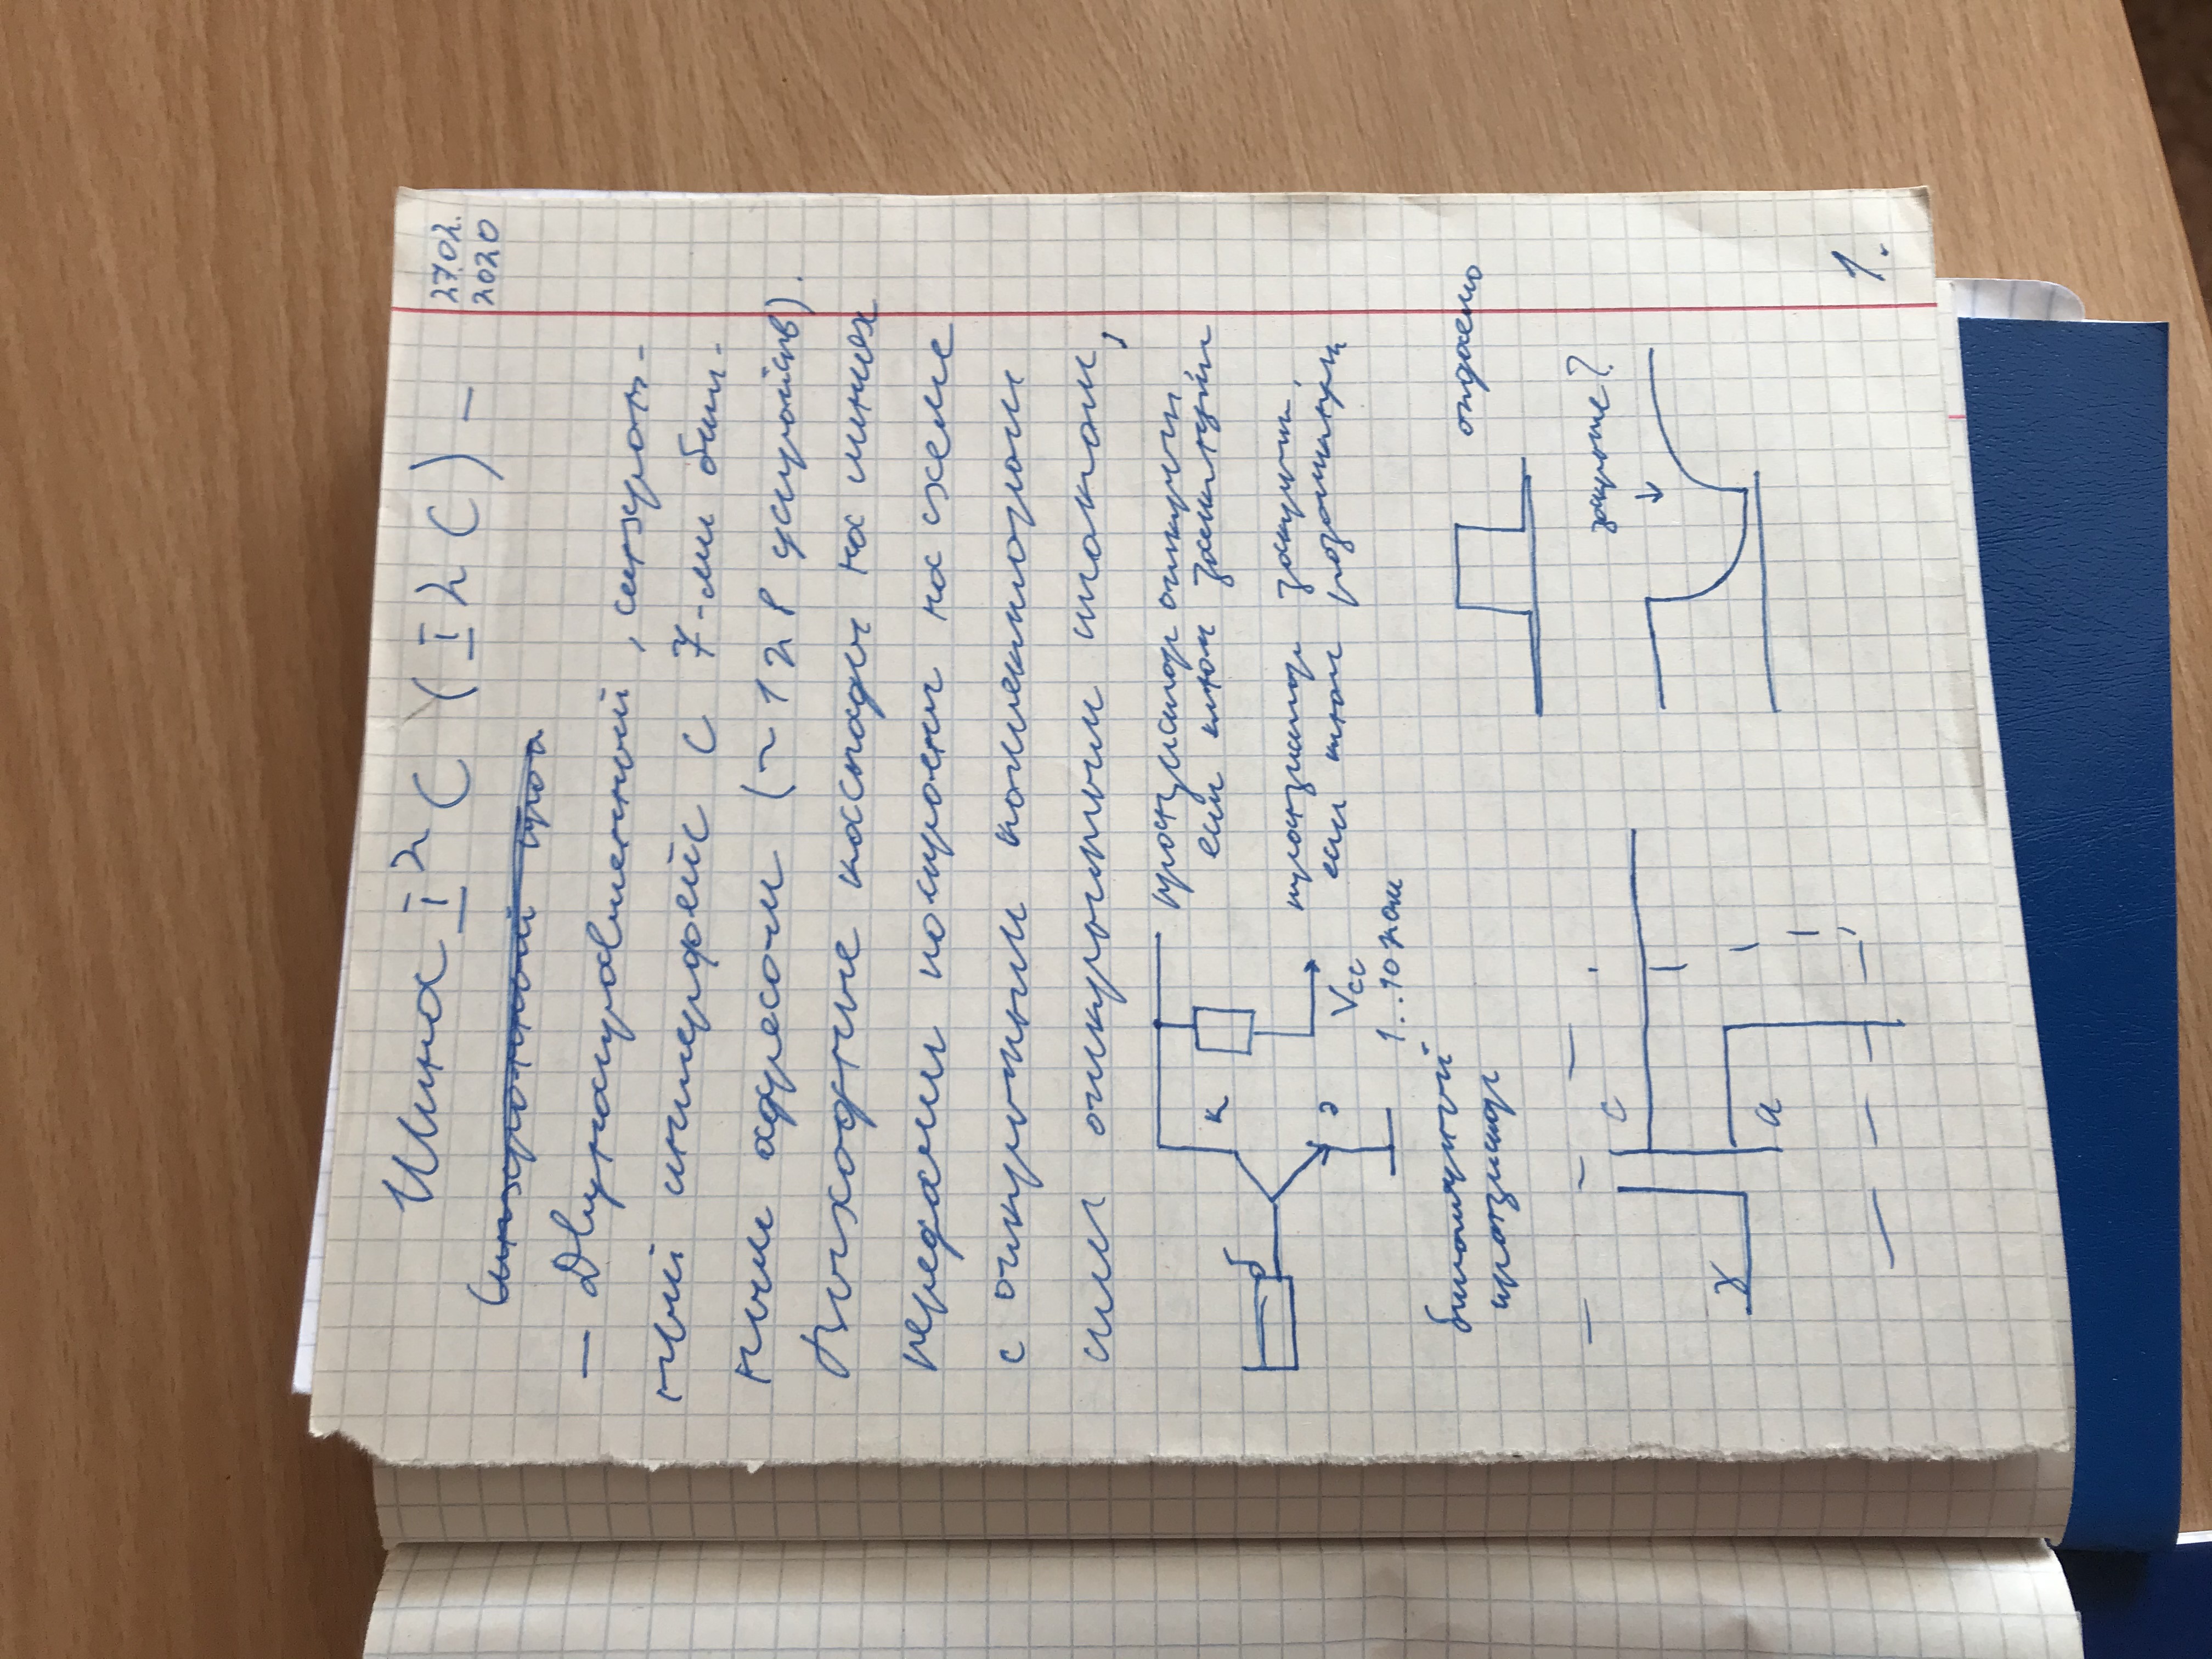 Шина I²C (I2C) –
27.02.
2020
Синхронный про
– Двунаправленный, синхрон-
ный интерфейс с 7-ми бит-
ным адресом (~128 устройств).
Выходные каскады на линиях
передачи построены на схеме
с открытым коллектором
или открытым стоком,
транзистор открыт,
если ключ замкнут
к
б
транзистор закрыт,
если ключ разомкнут
э
Vcc
1..10 кОм
биполярный
транзистор
ожидаемо
закрытие?
с
з
и
1.